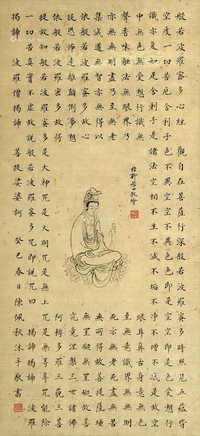 般若波羅蜜多心經 觀自在菩薩行深般若波羅蜜多時照見五蘊皆
空度一切苦厄舍利子色不異空空不異色色即是空空即是色受想行
識亦復如是舍利子是諸法空相不生不滅不垢不淨不增不減是故空
中無色無受想行識無眼耳鼻舌身意無色
聲香味觸法無眼界乃至無意識界無無明
亦無無明盡乃至無老死亦無老死盡無苦
集滅道無智亦無得以無所得故菩提薩埵
依般若波羅蜜多故心無罣礙無罣礙故
無有恐怖遠離顛倒夢想究竟涅槃三世諸佛
依般若波羅蜜多故得阿耨多羅三藐三菩
提故知般若波羅蜜多是大神咒是大明咒是無上咒是無等等咒能除
一切苦真實不虛故說般若波羅蜜多咒即說咒曰 揭諦揭諦 波羅
揭諦 波羅僧揭諦 菩提薩婆訶 癸巳春日陳佩秋沐手敬書
敬繪